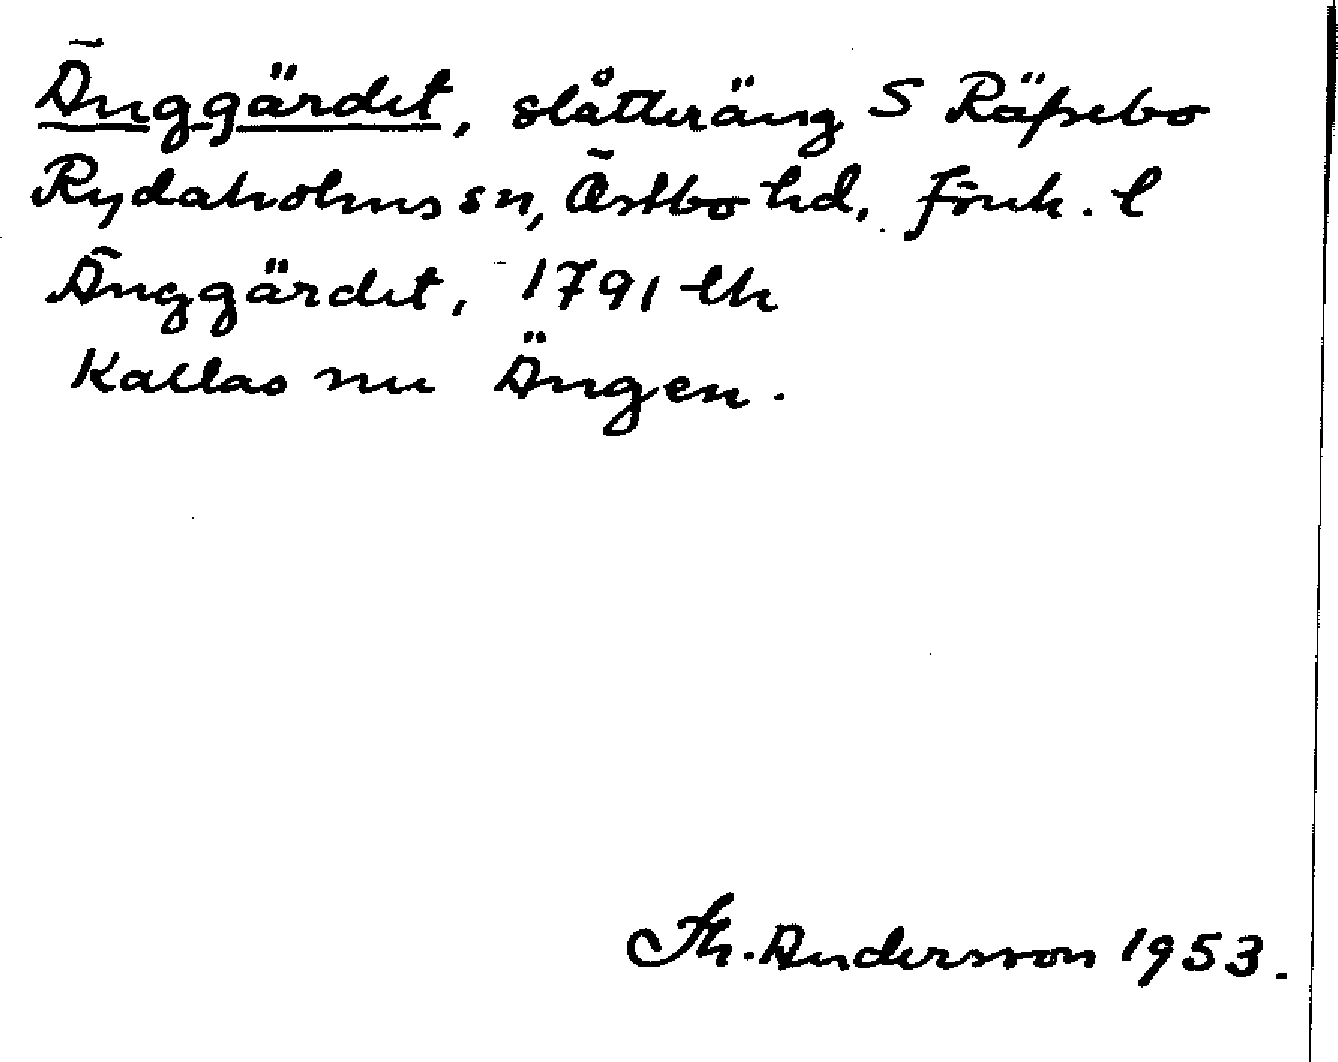 Änggärdet, slåtteräng S Räfsebo
Rydaholms sn, Östbo hd, Jönk. l
Änggärdet, 1791 lh
Kallas nu Ängen.
Th. Andersson 1953.